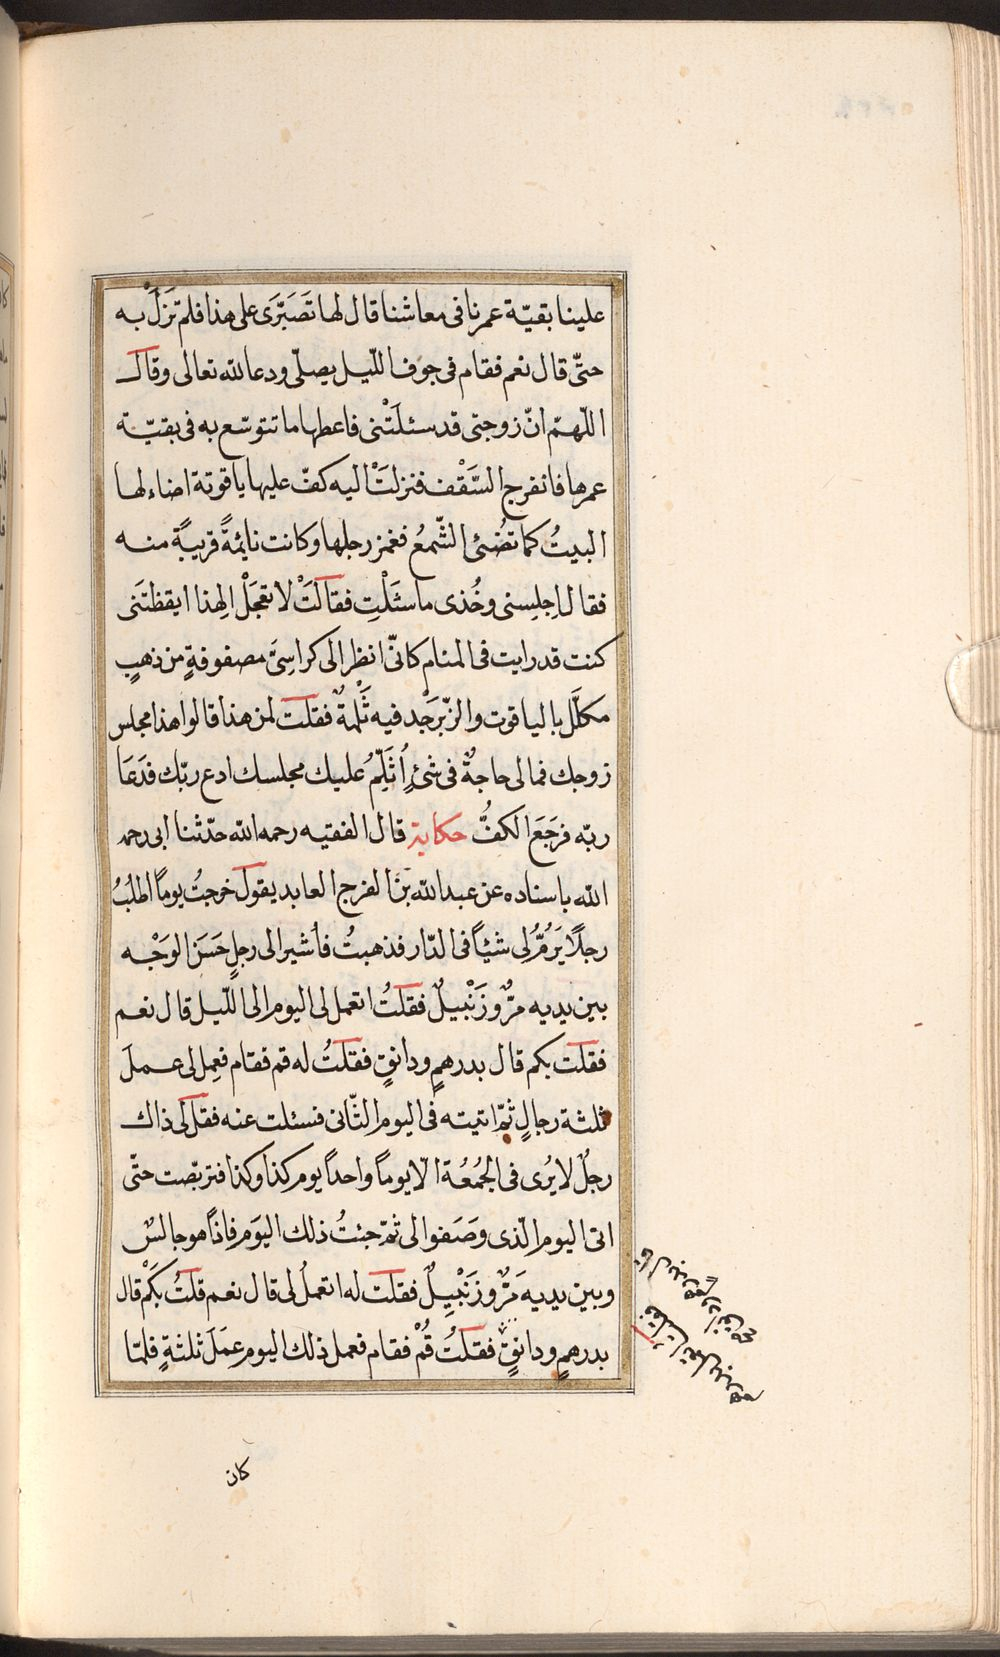 علينا بقيّة عمرنا فى معاشنا قال لها تَصَبَّرَى على هذا فلم تزَلْ به
حتّى قال نعم فقام فى جوف اللّيل يصلّى ودعا لله تعالى وقال
اللّهمّ انّ زوجتى قد سئلَتْنى فاعطها ما تتوسّع به فى بقيّة
عمرها فانفرج السَّقْف فنزلتْ اليه كفّ عليها ياقوتة اضاء لها
البيتُ كما تضُئ الشّمعُ فغمز رجلها وكانت نائمةً قريبةً منه
فقال اِجلِسنى وخُذى ما سئَلْتِ فقالَتْ لا تعجَلْ الهذا ايقظتَنى
كنت قد رايت فى المنام كانّ انظر الى كراسِىَّ مصفوفةٍ من ذهبٍ
مكلّل بالياقوت والزّبَرْجَد فيه ثَلْمةٌ فقلت لمن هذا قالوا هذا مجلس
زوجك فمالى حاجةٌ فى شئٍ اُثَلِّمُ عليك مجلسك ادع ربّك فدَعَا
ربّه فرجَعَ الكفُّ حكاية قال الفقيه رحمه الله حدّثنا ابى رحمه
الله باسناده عن عبد الله بن الفرج العابد يقول خرجتُ يوماً اطلُبُ
رجلًا يَرُمُّ لى شيئًا فى الدّار فذهبتُ فأشير الى رجلٍ حَسَن الوَجْه
بين يديه مَرٌّ وزَنْبيلٌ فقلتُ اتعمل لى اليوم الى اللّيل قال نعم
فقلت بكم قال بدرهمٍ ودانقٍ فقلتُ له قم فقام فعِمل لى عملَ
ثلثة رجالٍ ثمّ اتيته فى اليوم الثّانى فسئلت عنه فقل لى ذاك
رجلٌ لا يُرى فى الجمُعُة الّا يوماً واحداً يوم كذا وكذا فتربّصت حتّى
اتى اليوم الّذى وصَفوا لى ثمّ جئتُ ذلك اليَوم فاذاً هو جالسٌ
وبين يديهَ مَرٌّ وزَنْبِيلٌ فقلت له اتعملُ لى قال نعم قلتُ بكَمْ قال
بدرهمٍ ودانقٍ فقلتُ قُمْ فقام فعمل ذلك اليوم عمَلَ ثلثةٍ فلمّا
كان